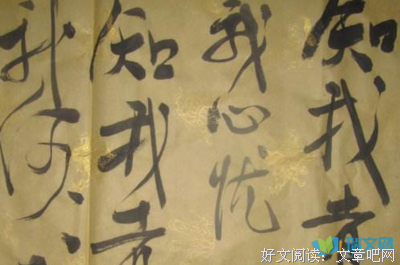 知我者
我心忧
知我者
我何
好文阅读：文章吧网